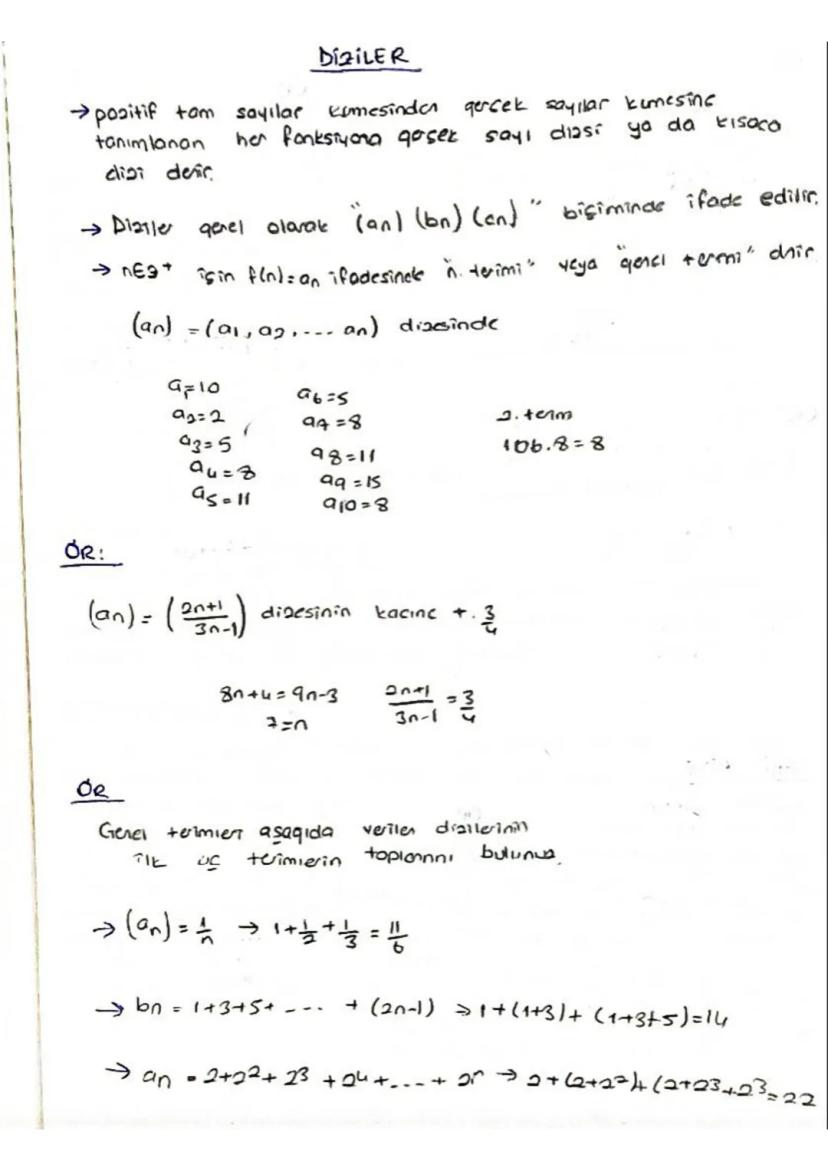 DİZİLER
→ pozitif tam sayılar kümesinden gerçek sayılar kümesine
tanımlanan her fonksiyona gerçek sayı dizisi ya da kısaca
dizi denir.
→ Diziler genel olarak "(an) (bn) (cn)" biçiminde ifade edilir.
→ n∈z⁺ için f(n)=an ifadesinde "n. terimi" veya "genel terimi" denir
(an) = (a1, a2, .... an) dizisinde
a1=10
a2=2
a3=5
a4=8
a5=11
a6=5
a7=8
a8=11
a9=15
a10=8
2. terim
106.8=8
ÖR:
(an) = (2n+1/3n-1) dizesinin kaçıncı t. 3/4
8n+4=9n-3 2n+1/3n-1 = 3/4
7=n
ÖR
Genel terimleri aşağıda verilen dizilerinin
ilk üç terimlerin toplamını bulunuz.
→ (an) = 1/n → 1+1/2+1/3 = 11/6
→ bn = 1+3+5+ .... + (2n-1) → 1+(1+3)+(1+3+5)=14
→ an = 2+2²+2³+2⁴+....+2ⁿ → 2+(2+2²)+(2+2³+2³=22